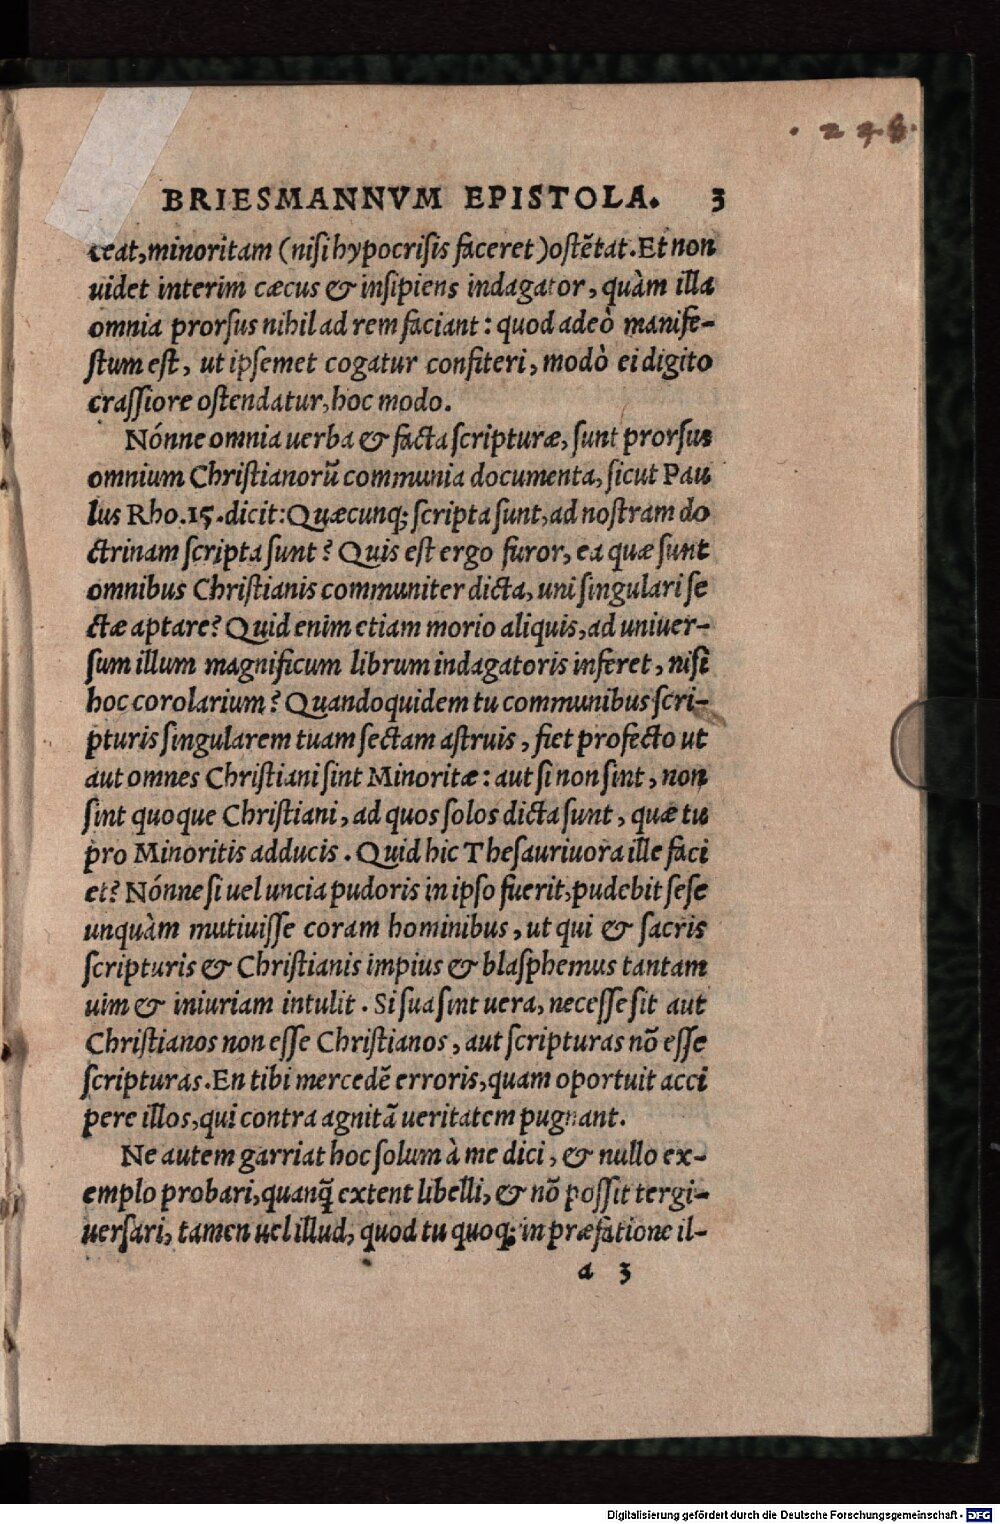 . 248.
BRIESMANNVM EPISTOLA. 3
ceat, minoritam (nisi hypocrisis faceret) ostētat. Et non
uidet interim cæcus & insipiens indagator, quàm illa
omnia prorsus nihil ad rem faciant: quod adeò manife-
stum est, ut ipsemet cogatur confiteri, modò ei digito
crassiore ostendatur, hoc modo.
Nónne omnia uerba & facta scripturæ, sunt prorsus
omnium Christianorū communia documenta, sicut Pau
lus Rho. 15. dicit: Quæcunq; scripta sunt, ad nostram do
ctrinam scripta sunt? Quis est ergo furor, ea quæ sunt
omnibus Christianis communiter dicta, uni singulari se
ctæ aptare? Quid enim etiam morio aliquis, ad uniuer-
sum illum magnificum librum indagatoris inferet, nisi
hoc corolarium? Quandoquidem tu communibus scri-
pturis singularem tuam sectam astruis, fiet profecto ut
aut omnes Christiani sint Minoritæ: aut si non sint, non
sint quoque Christiani, ad quos solos dicta sunt, quæ tu
pro Minoritis adducis. Quid hic Thesauriuora ille faci
et? Nónne si uel uncia pudoris in ipso fuerit, pudebit sese
unquàm mutiuisse coram hominibus, ut qui & sacris
scripturis & Christianis impius & blasphemus tantam
uim & iniuriam intulit. Si sua sint uera, necesse sit aut
Christianos non esse Christianos, aut scripturas nō esse
scripturas. En tibi mercedē erroris, quam oportuit acci
pere illos, qui contra agnitā ueritatem pugnant.
Ne autem garriat hoc solum à me dici, & nullo ex-
emplo probari, quanq̃ extent libelli, & nō possit tergi-
uersari, tamen uel illud, quod tu quoq; in præfatione il-
a 3
Digitalisierung gefördert durch die Deutsche Forschungsgemeinschaft - DFG